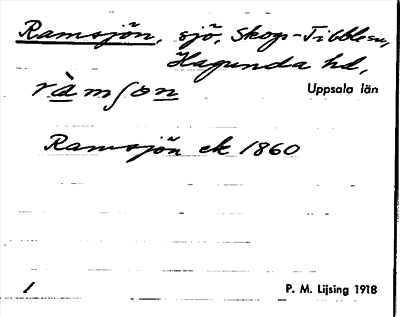 Ramsjön, sjö, Skogs-Tibble sn,
Hagunda hd,
ràmʃon
Uppsala län
Ramsjön ek 1860
1
P. M. Lijsing 1918